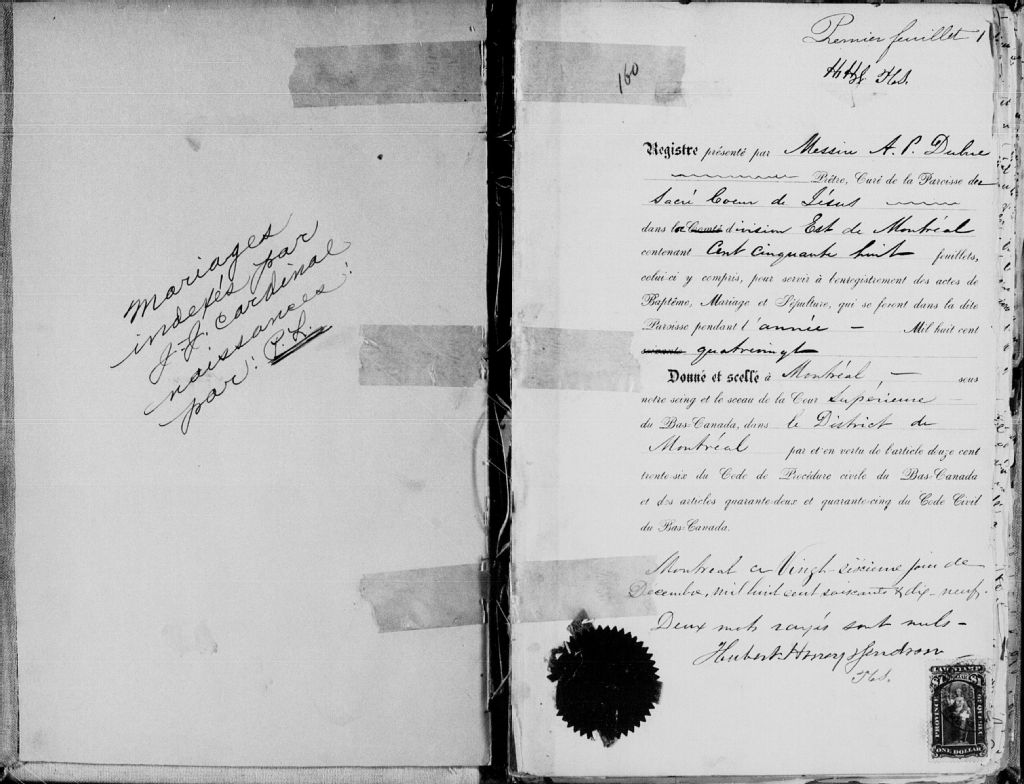 mariages
indexés par
J.J. Cardinal
naissances
par: P.L.
160
Premier feuillet 1
HHG Fls.
Registre présenté par Messire A. P. Dubuc
Prêtre, Curé de la Paroisse du
Sacré Coeur de Jésus
dans la Comté division Est de Montréal
contenant Cent cinquante huit feuillets,
celui-ci y compris, pour servir à l'enregistrement des actes de
Baptême, Mariage et Sépulture, qui se feront dans la dite
Paroisse pendant l'année Mil huit cent
soixante quatrevingt
Donné et scellé à Montréal — sous
notre seing et le sceau de la Cour Supérieure
du Bas-Canada, dans le District de
Montréal par et en vertu de l'article douze cent
trente-six du Code de Procédure civile du Bas-Canada
et des articles quarante-deux et quarante-cinq du Code Civil
du Bas-Canada.
Montreal ce Vingt-sixieme jour de
Decembre, mil huit cent soixante & dix-neuf.
Deux mots rayés sont nuls —
Hubert Honey & Gendron
LAW STAMP
PROVINCE OF QUEBEC
ONE DOLLAR